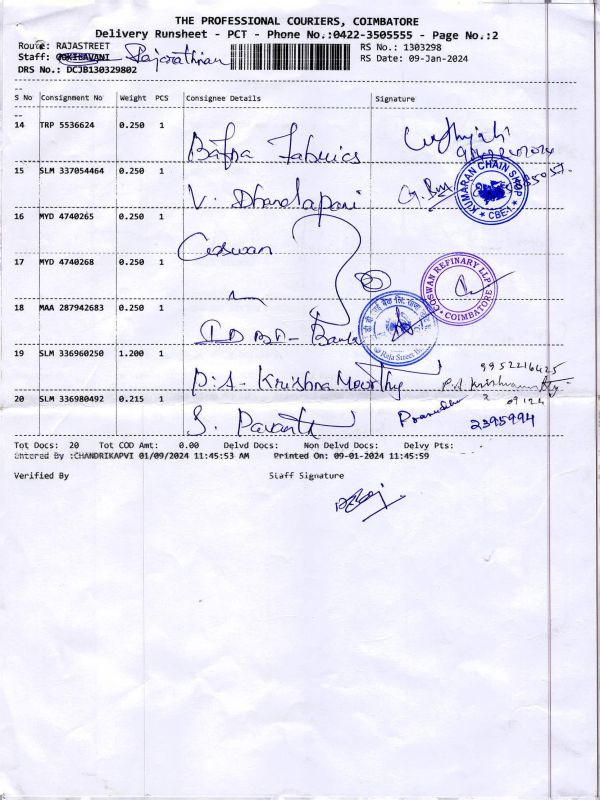 THE PROFESSIONAL COURIERS, COIMBATORE
Delivery Runsheet - PCT - Phone No.:0422-3505555 - Page No.:2
Route: RAJASTREET RS No.: 1303298
Staff: RS Date: 09-Jan-2024
DRS No.: DCJB130329802
S No Consignment No Weight PCS Consignee Details Signature
14 TRP 5536624 0.250 1
Fabrics
15 SLM 337054464 0.250 1
V. Dhandapani
KUMARAN CHAIN SHOP
* CBE-1 *
16 MYD 4740265 0.250 1
Coswan
17 MYD 4740268 0.250 1
COSWAN REFINARY LLP
* COIMBATORE *
18 MAA 287942683 0.250 1
IDBI - Bank
Raja Street
19 SLM 336960250 1.200 1
P.S - Krishna Moorthy
9952216425
20 SLM 336980492 0.215 1
S.
2395994
Tot Docs: 20 Tot COD Amt: 0.00 Delvd Docs: Non Delvd Docs: Delvy Pts:
Entered By :CHANDRIKAPVI 01/09/2024 11:45:53 AM Printed On: 09-01-2024 11:45:59
Verified By Staff Signature